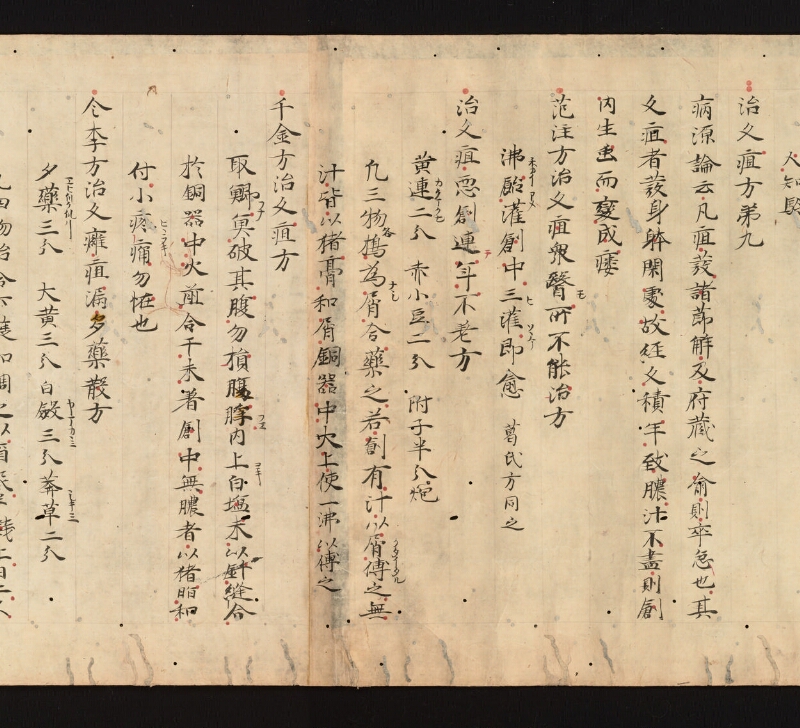 治久疽方第九
病源論云凡疽發諸節解及府藏之俞則卒急也其
久疽者發身體閑處故經久積年致膿汁不盡則創
内生虫而變成瘻
范汪方治久疽衆醫所不能治方
沸 灌創中三灌即愈 葛氏方同之
治久疽惡創連年不差方
黄連二分 赤小豆二分 附子半分炮
凡三物擣為屑合藥之若創有汁以屑傅之無
汁皆以猪膏和屑銅器中火上使一沸以傅之
千金方治久疽方
取鯽魚破其腹勿損 内上白塩末以針縫合
於銅器中火煎合干末著創中無膿者以猪脂和
付小疼痛勿恠也
令李方治久癰疽漏夕藥散方
夕藥三分 大黄三分 白斂三分 莽草二分
凡四物冶合